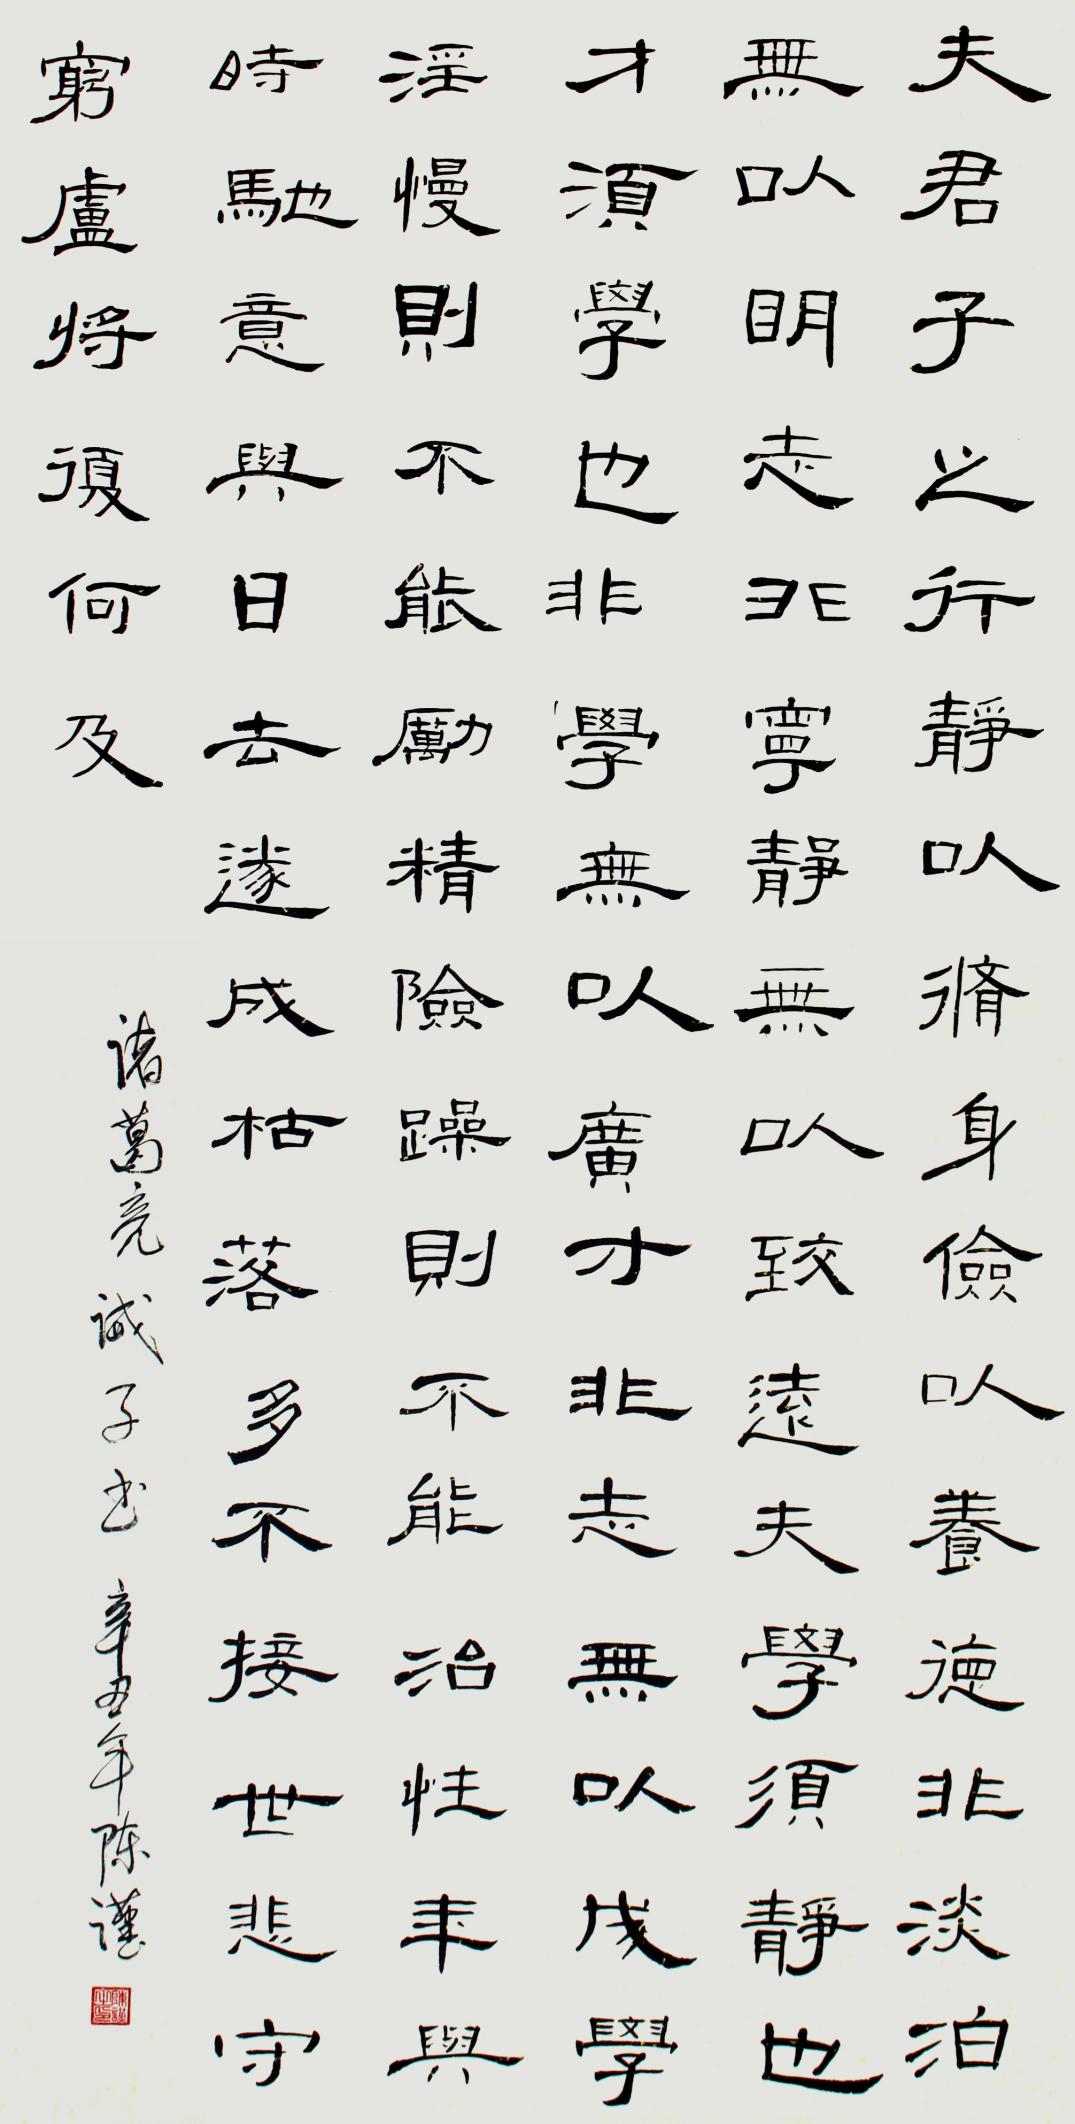 夫君子之行靜以脩身儉以養德非淡泊
無以明志非寧靜無以致遠夫學須靜也
才須學也非學無以廣才非志無以成學
淫慢則不能勵精險躁則不能冶性年與
時馳意與日去遂成枯落多不接世悲守
窮盧將復何及
诸葛亮诫子书 辛丑年陈谨